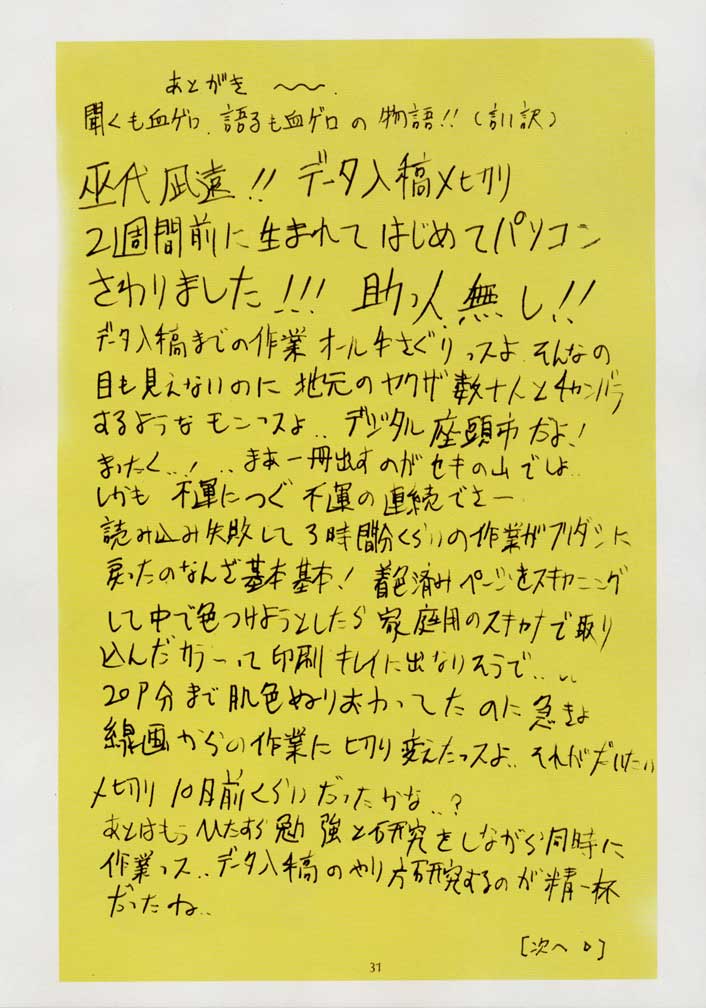 あとがき 〜〜.
聞くも血ゲロ、語るも血ゲロの物語!!(言い訳)
巫代凪遠!! データ入稿〆切り
2週間前に生まれてはじめてパソコン
さわりました!!! 助っ人、無し!!
データ入稿までの作業オール手さぐりっスよ、そんなの
目も見えないのに地元のヤクザ数十人とチャンバラ
するようなモンっスよ.. デジタル座頭市だよ!
まったく..! ..まあ一冊出すのがセキの山でしょ..
しかも 不運につぐ不運の連続でさー
読み込み失敗して3時間分くらいの作業がフリダシに
戻ったのなんざ基本基本! 着色済みページをスキャニング
して中で色つけようとしたら家庭用のスキャナで取り
込んだカラーって印刷キレイに出ないそうで...
20P分まで肌色ぬりおわってたのに急きょ
線画からの作業に切り変えたっスよ.. それがだいたい
〆切り10日前くらいだったかな..?
あとはもうひたすら勉強と研究をしながら同時に
作業っス.. データ入稿のやり方研究するのが精一杯
だったね..
[次へ▷]
31